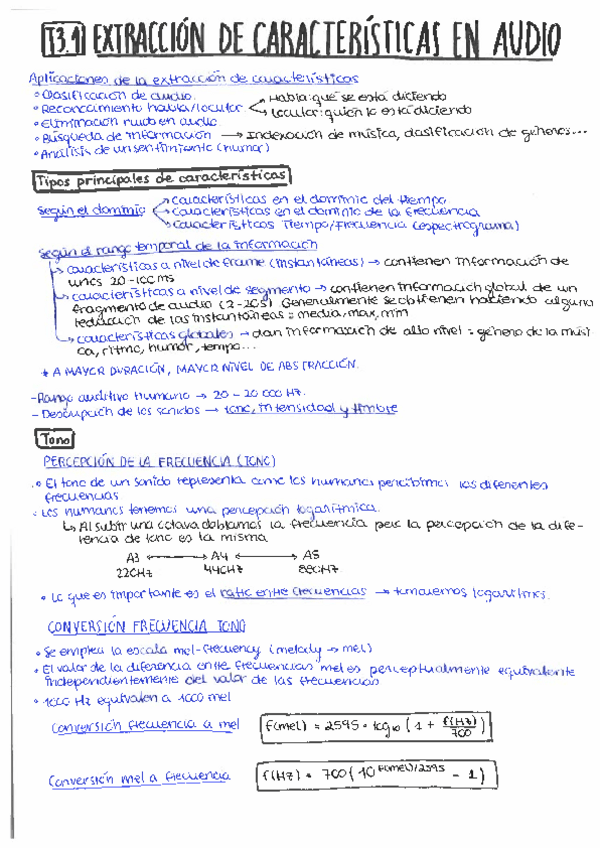 T3.1 EXTRACCIÓN DE CARACTERÍSTICAS EN AUDIO
Aplicaciones de la extracción de características
• Clasificación de audio
• Reconocimiento habla/locutor → Habla: qué se está diciendo
→ Locutor: quién lo está diciendo
• Eliminación ruido en audio
• Búsqueda de información → Indexación de música, clasificación de géneros...
• Análisis de un sentimiento (humor)
Tipos principales de características
Según el dominio → características en el dominio del tiempo
→ características en el dominio de la frecuencia
→ características Tiempo/Frecuencia (espectrograma)
Según el rango temporal de la información
→ características a nivel de frame (instantáneas) → contienen información de
unos 20-100 ms
→ características a nivel de segmento → contienen información global de un
fragmento de audio (2-20s) Generalmente se obtienen haciendo alguna
reducción de las instantáneas = media, max, min
→ características globales → dan información de alto nivel = género de la músi
ca, ritmo, humor, tempo...
* A MAYOR DURACIÓN, MAYOR NIVEL DE ABSTRACCIÓN.
- Rango auditivo humano → 20 - 20 000 Hz.
- Descripción de los sonidos → tono, intensidad y timbre
Tono
PERCEPCIÓN DE LA FRECUENCIA (TONO)
• El tono de un sonido representa como los humanos percibimos las diferentes
frecuencias
• Los humanos tenemos una percepción logarítmica.
↳ Al subir una octava doblamos la frecuencia pero la percepción de la dife-
rencia de tono es la misma
A3 ↔ A4 ↔ A5
220Hz 440Hz 880Hz
• Lo que es importante es el ratio entre frecuencias → tomaremos logaritmos.
CONVERSIÓN FRECUENCIA TONO
• Se emplea la escala mel-frequency (melody → mel)
• El valor de la diferencia entre frecuencias mel es perceptualmente equivalente
independientemente del valor de las frecuencias
• 1000 Hz equivalen a 1000 mel
Conversión frecuencia a mel f(mel) = 2595 · log10 (1 + f(Hz)/700)
Conversión mel a frecuencia f(Hz) = 700(10^f(mel)/2595 - 1)